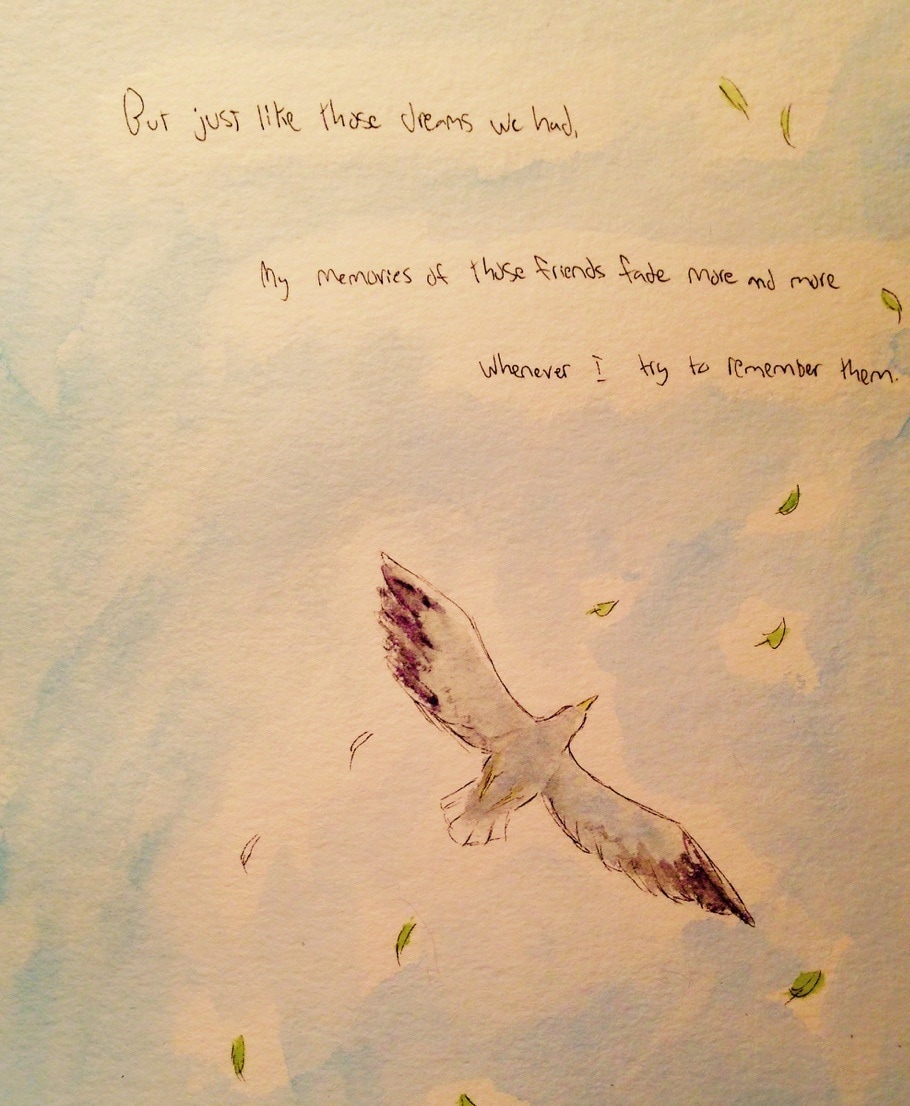 But just like those dreams we had,
My memories of those friends fade more and more
Whenever I try to remember them.